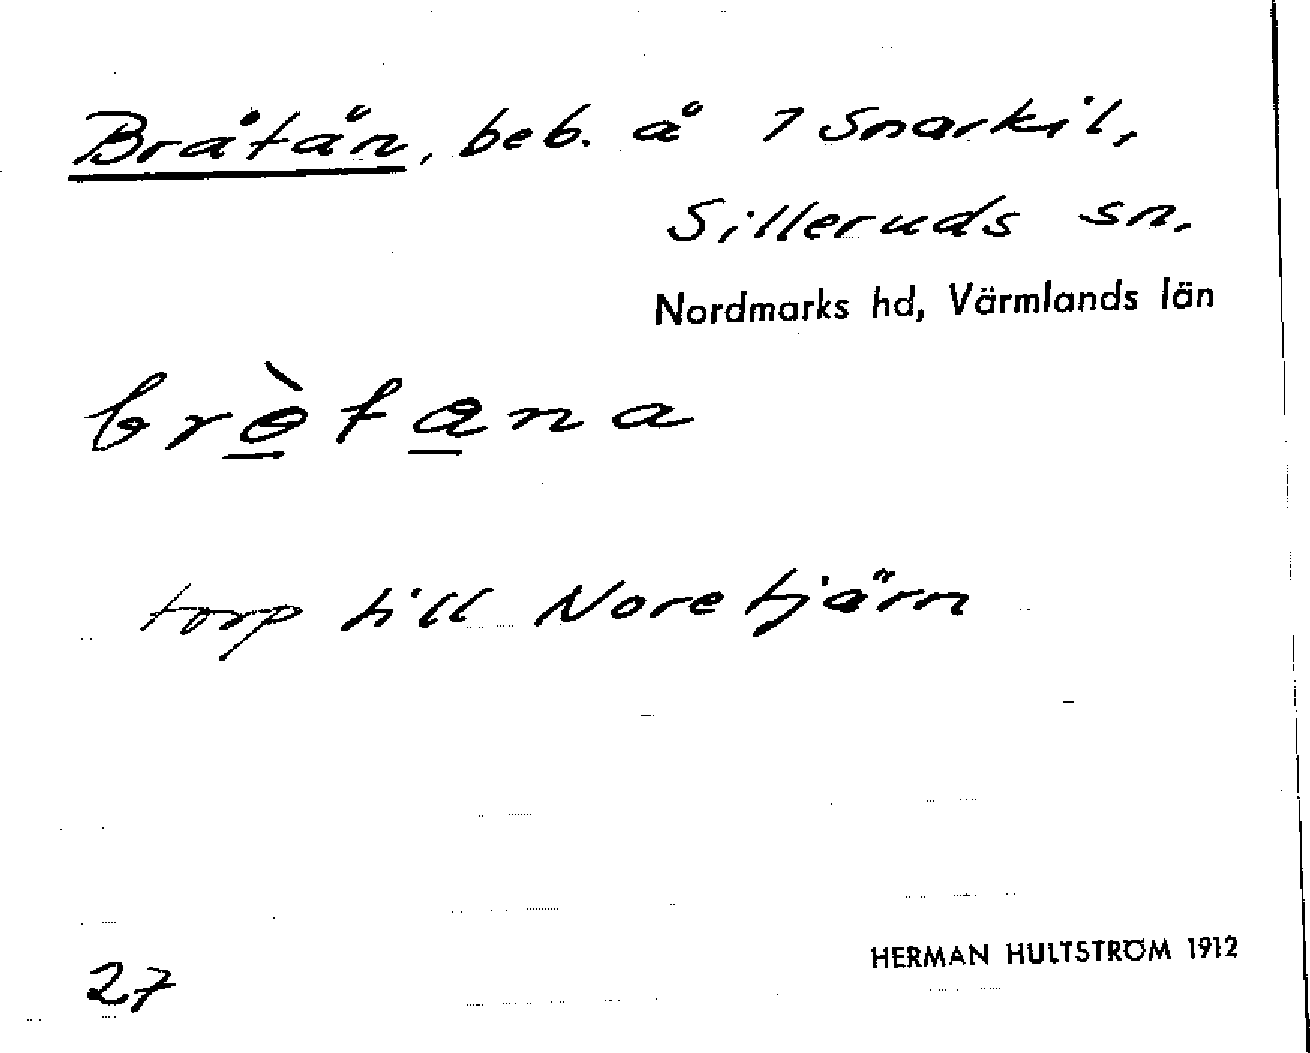 Bråtån, beb. å 1 Snarkil,
Silleruds sn,
Nordmarks hd, Värmlands län
brètana
torp till Noretjärn
HERMAN HULTSTRÖM 1912
27